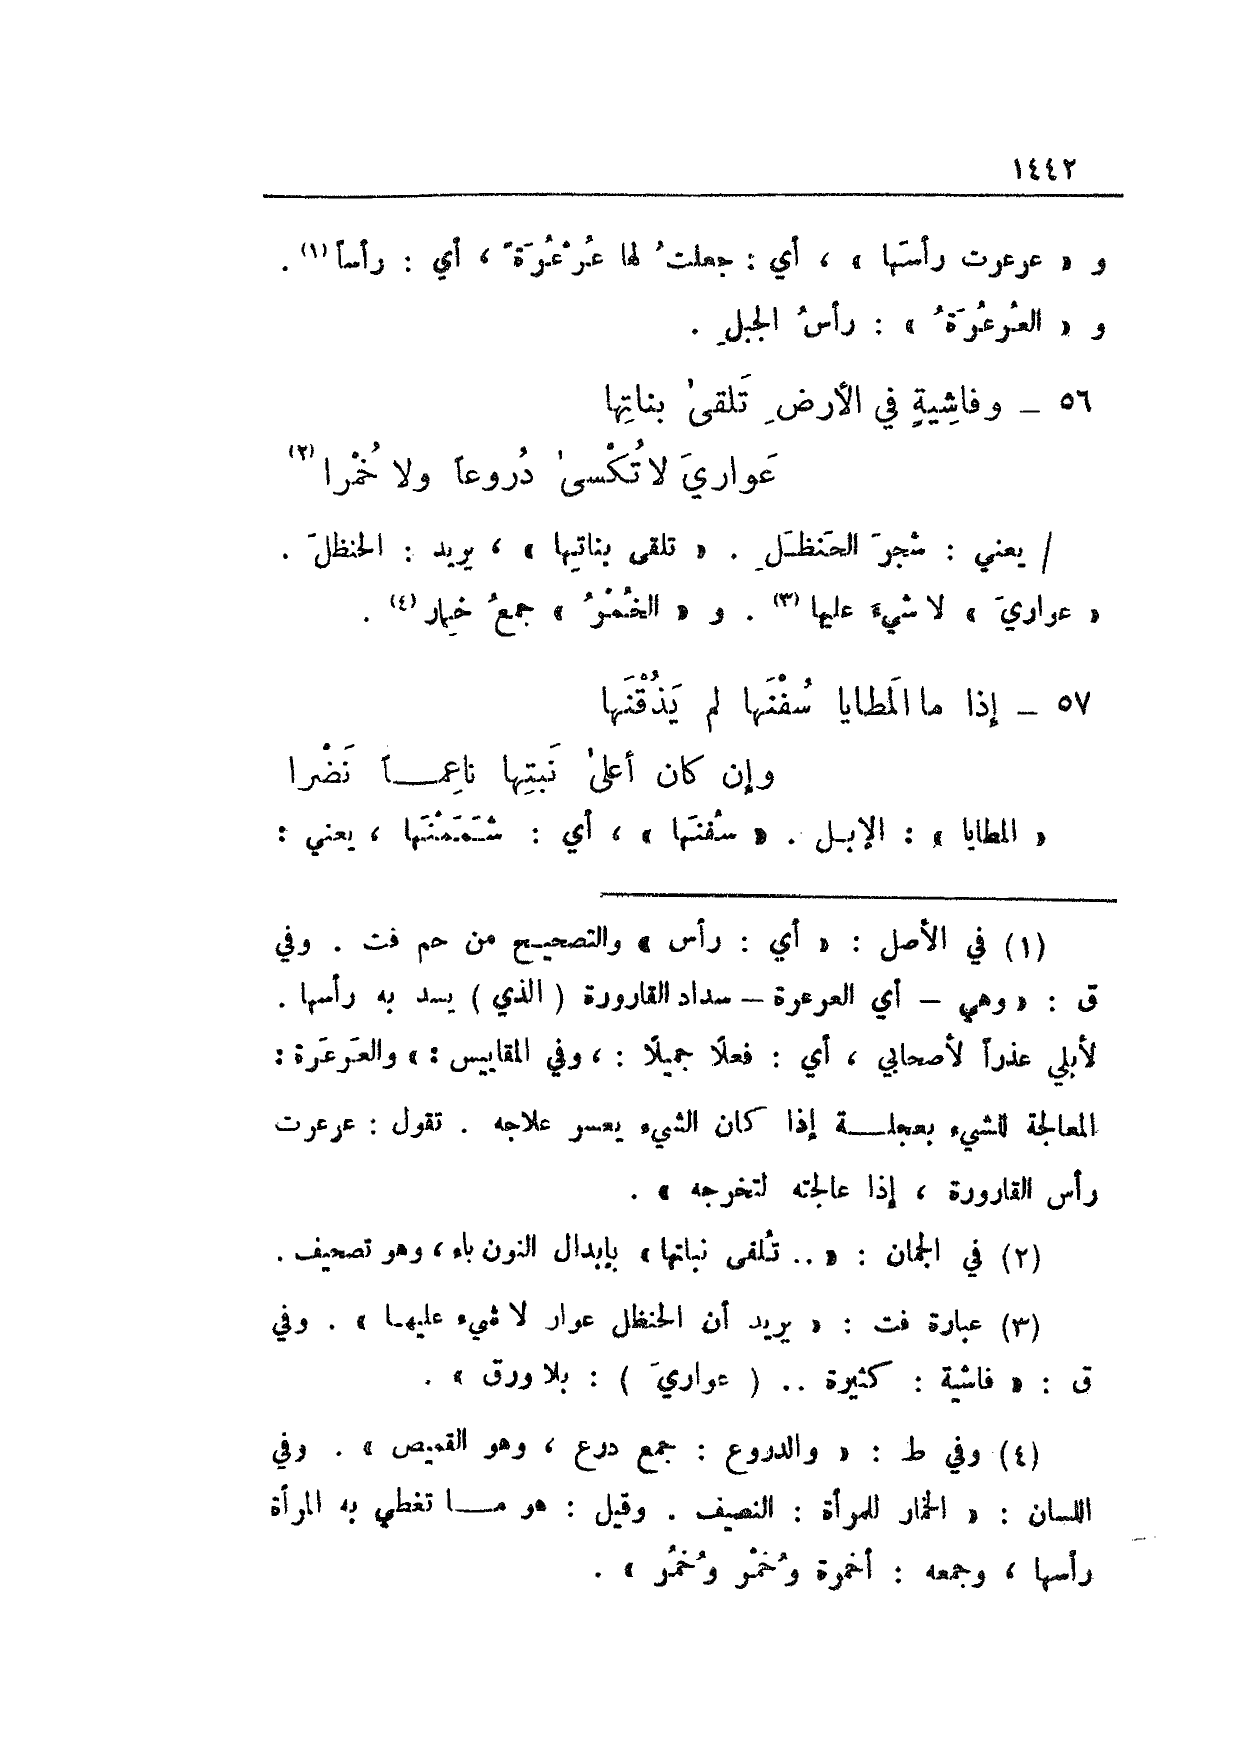 ١٤٤٢
و « عرعرت رأسَها » ، أي : جعلتُ لها عُرْعُرَةً ، أي : رأساً (١) .
و « العُرعُرَةُ » : رأسُ الجبلِ .
٥٦ ـ وفاشِيةٍ في الأرضِ تَلقىٰ بناتِها
عَواريَ لا تُكْسىٰ دُروعاً ولا خُمْرا (٢)
/ يعني : شجرَ الحَنظَلِ . « تلقى بناتِها » ، يريد : الحنظلَ .
« عواريَ » لا شيءَ عليها (٣) . و « الخُمْرُ » جمعُ خِمار (٤) .
٥٧ ـ إذا ما المَطايا سُفْنَها لم يَذُقْنَها
وإن كان أعلىٰ نَبتِها ناعِمـــاً نَضْرا
« المطايا » : الإبـل . « سُفنَها » ، أي : شَمَمْنَها ، يعني :
(١) في الأصل : « أي : رأس » والتصحيح من حم فت . وفي
ق : « وهي – أي العرعرة – سداد القارورة ( الذي ) يسد به رأسها .
لأبلي عذراً لأصحابي ، أي : فعلًا جميلًا : ، وفي المقاييس : » والعَرعَرة :
المعالجة للشيء بعجلـــة إذا كان الشيء يعسر علاجه . تقول : عرعرت
رأس القارورة ، إذا عالجته لتخرجه » .
(٢) في الجمان : « .. تُلفى نباتها » بإبدال النون باء ، وهو تصحيف .
(٣) عبارة فت : « يريد أن الحنظل عوار لا شيء عليهـا » . وفي
ق : « فاشية : كثيرة .. ( عواريَ ) : بلا ورق » .
(٤) وفي ط : « والدروع : جمع درع ، وهو القميص » . وفي
اللسان : « الخمار للمرأة : النصيف . وقيل : هو مـــا تغطي به المرأة
رأسها ، وجمعه : أخمرة وخُمْر وخُمُر » .